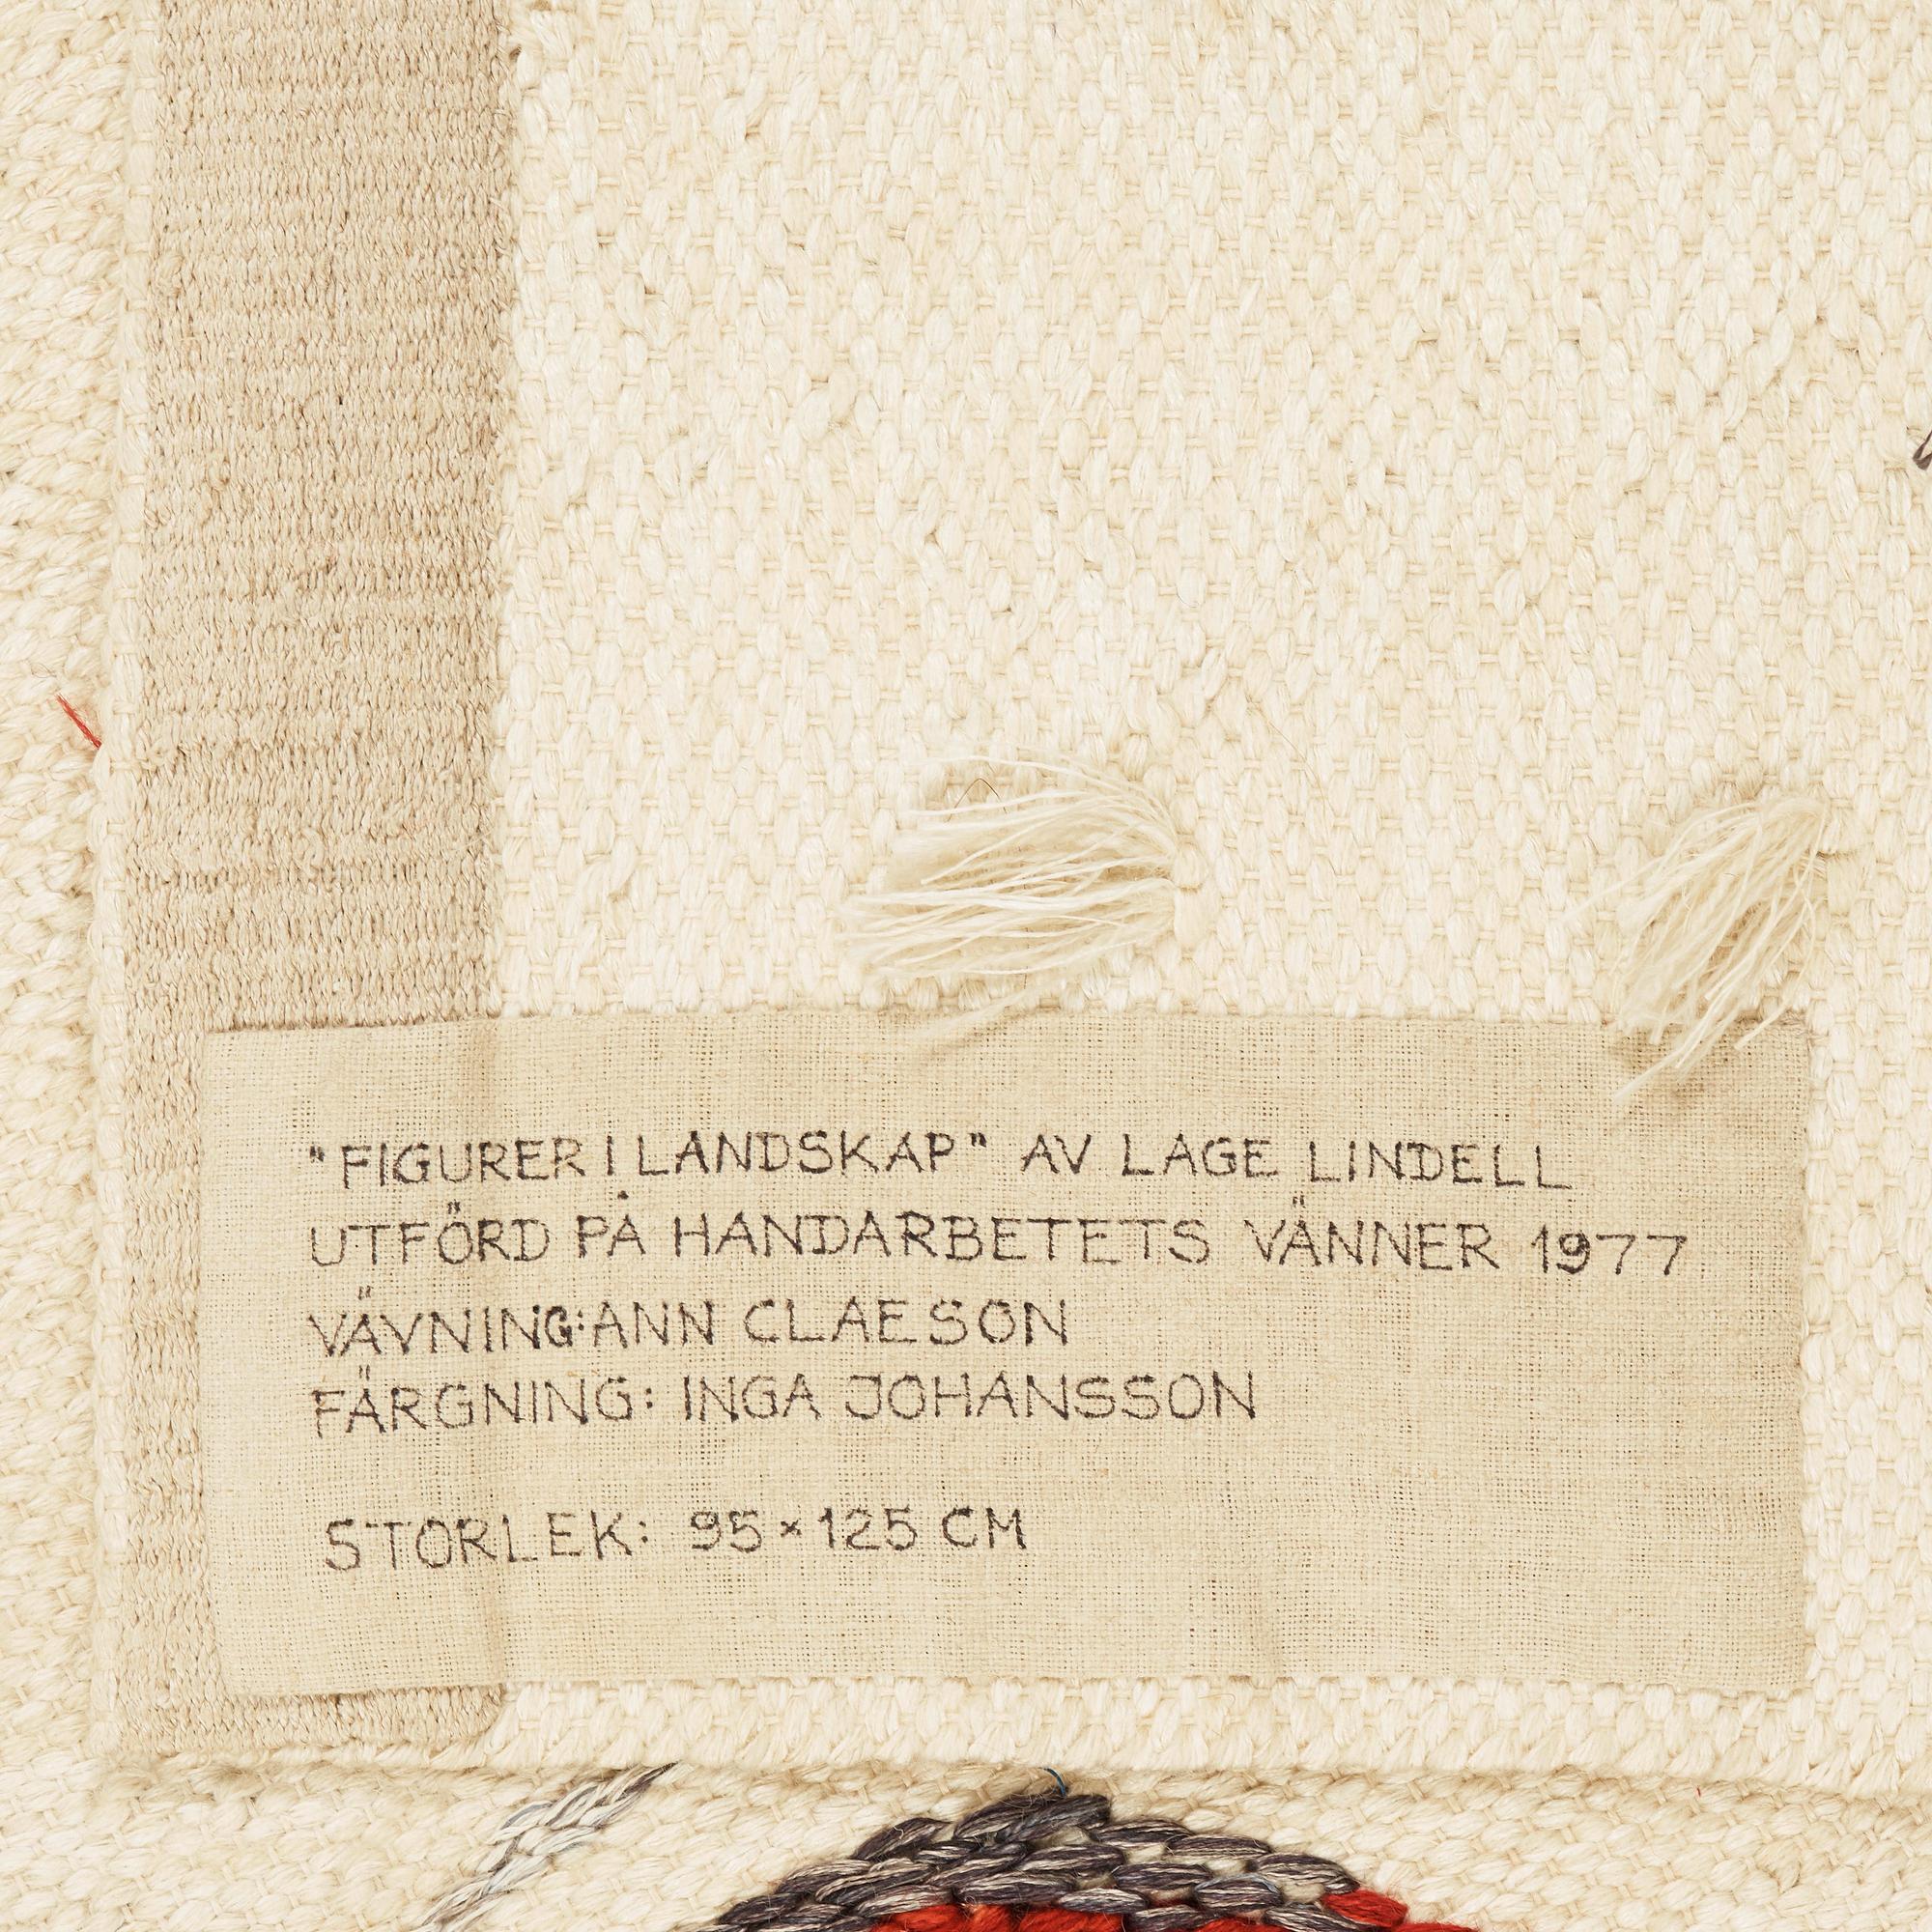 "FIGURER I LANDSKAP" AV LAGE LINDELL
UTFÖRD PÅ HANDARBETETS VÄNNER 1977
VÄVNING: ANN CLAESON
FÄRGNING: INGA JOHANSSON
STORLEK: 95×125 CM